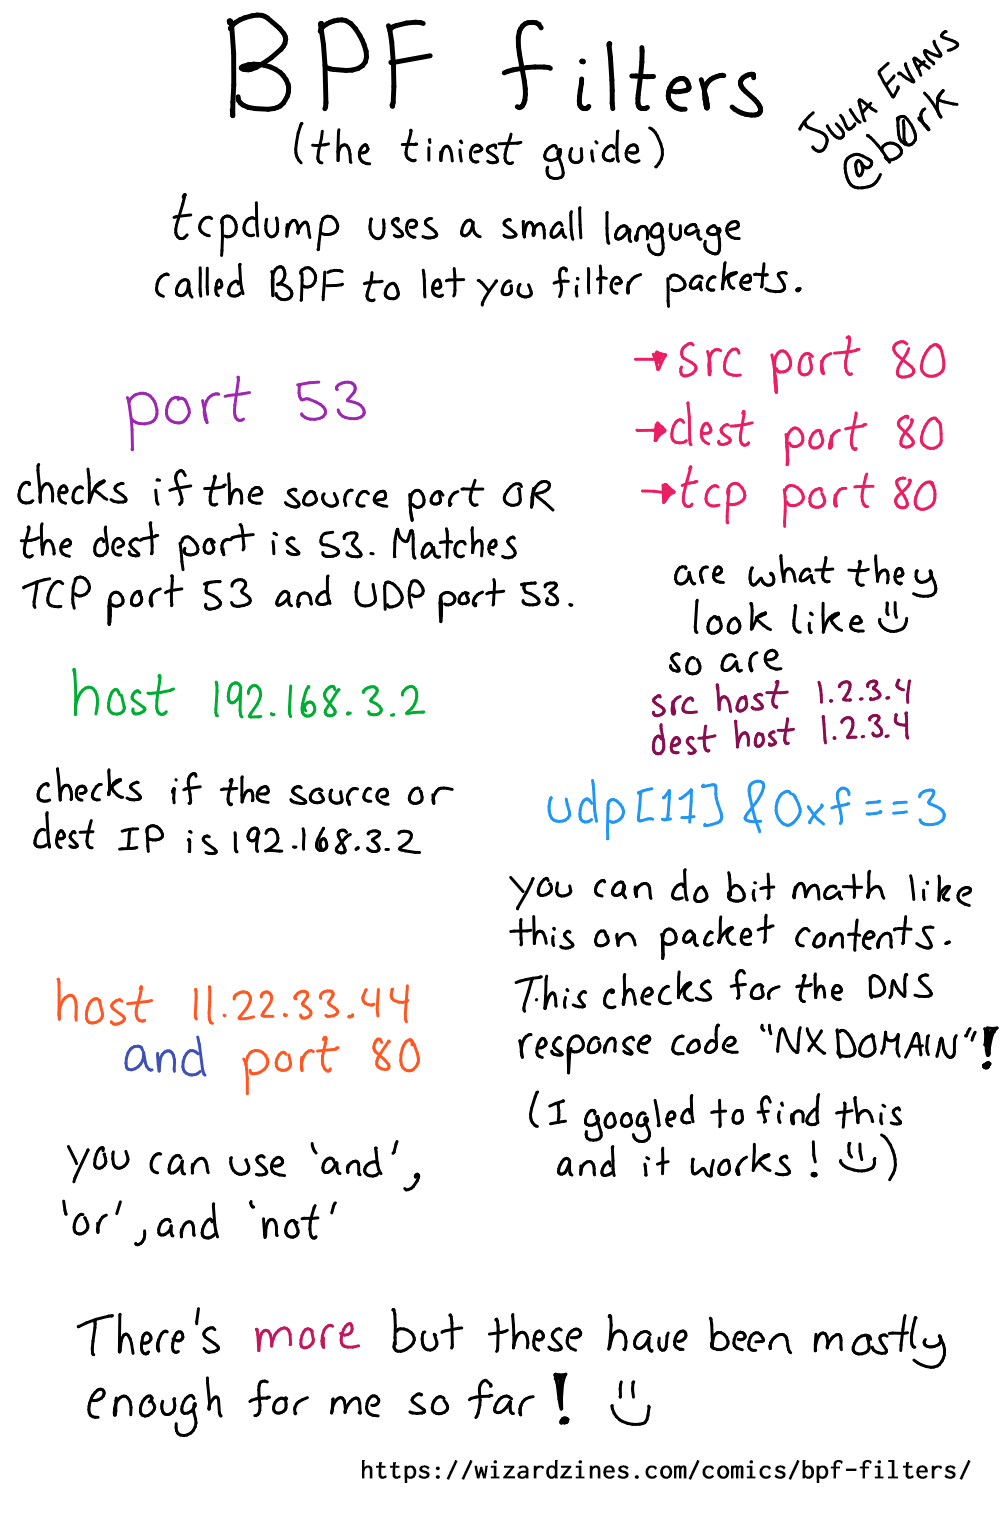 BPF filters
(the tiniest guide)
JULIA EVANS
@b0rk
tcpdump uses a small language
called BPF to let you filter packets.
port 53
checks if the source port OR
the dest port is 53. Matches
TCP port 53 and UDP port 53.
host 192.168.3.2
checks if the source or
dest IP is 192.168.3.2
host 11.22.33.44
and port 80
you can use 'and',
'or', and 'not'
→ src port 80
→ dest port 80
→ tcp port 80
are what they
look like
so are
src host 1.2.3.4
dest host 1.2.3.4
udp[11] & 0xf == 3
you can do bit math like
this on packet contents.
This checks for the DNS
response code "NX DOMAIN"!
(I googled to find this
and it works! )
There's more but these have been mostly
enough for me so far!
https://wizardzines.com/comics/bpf-filters/